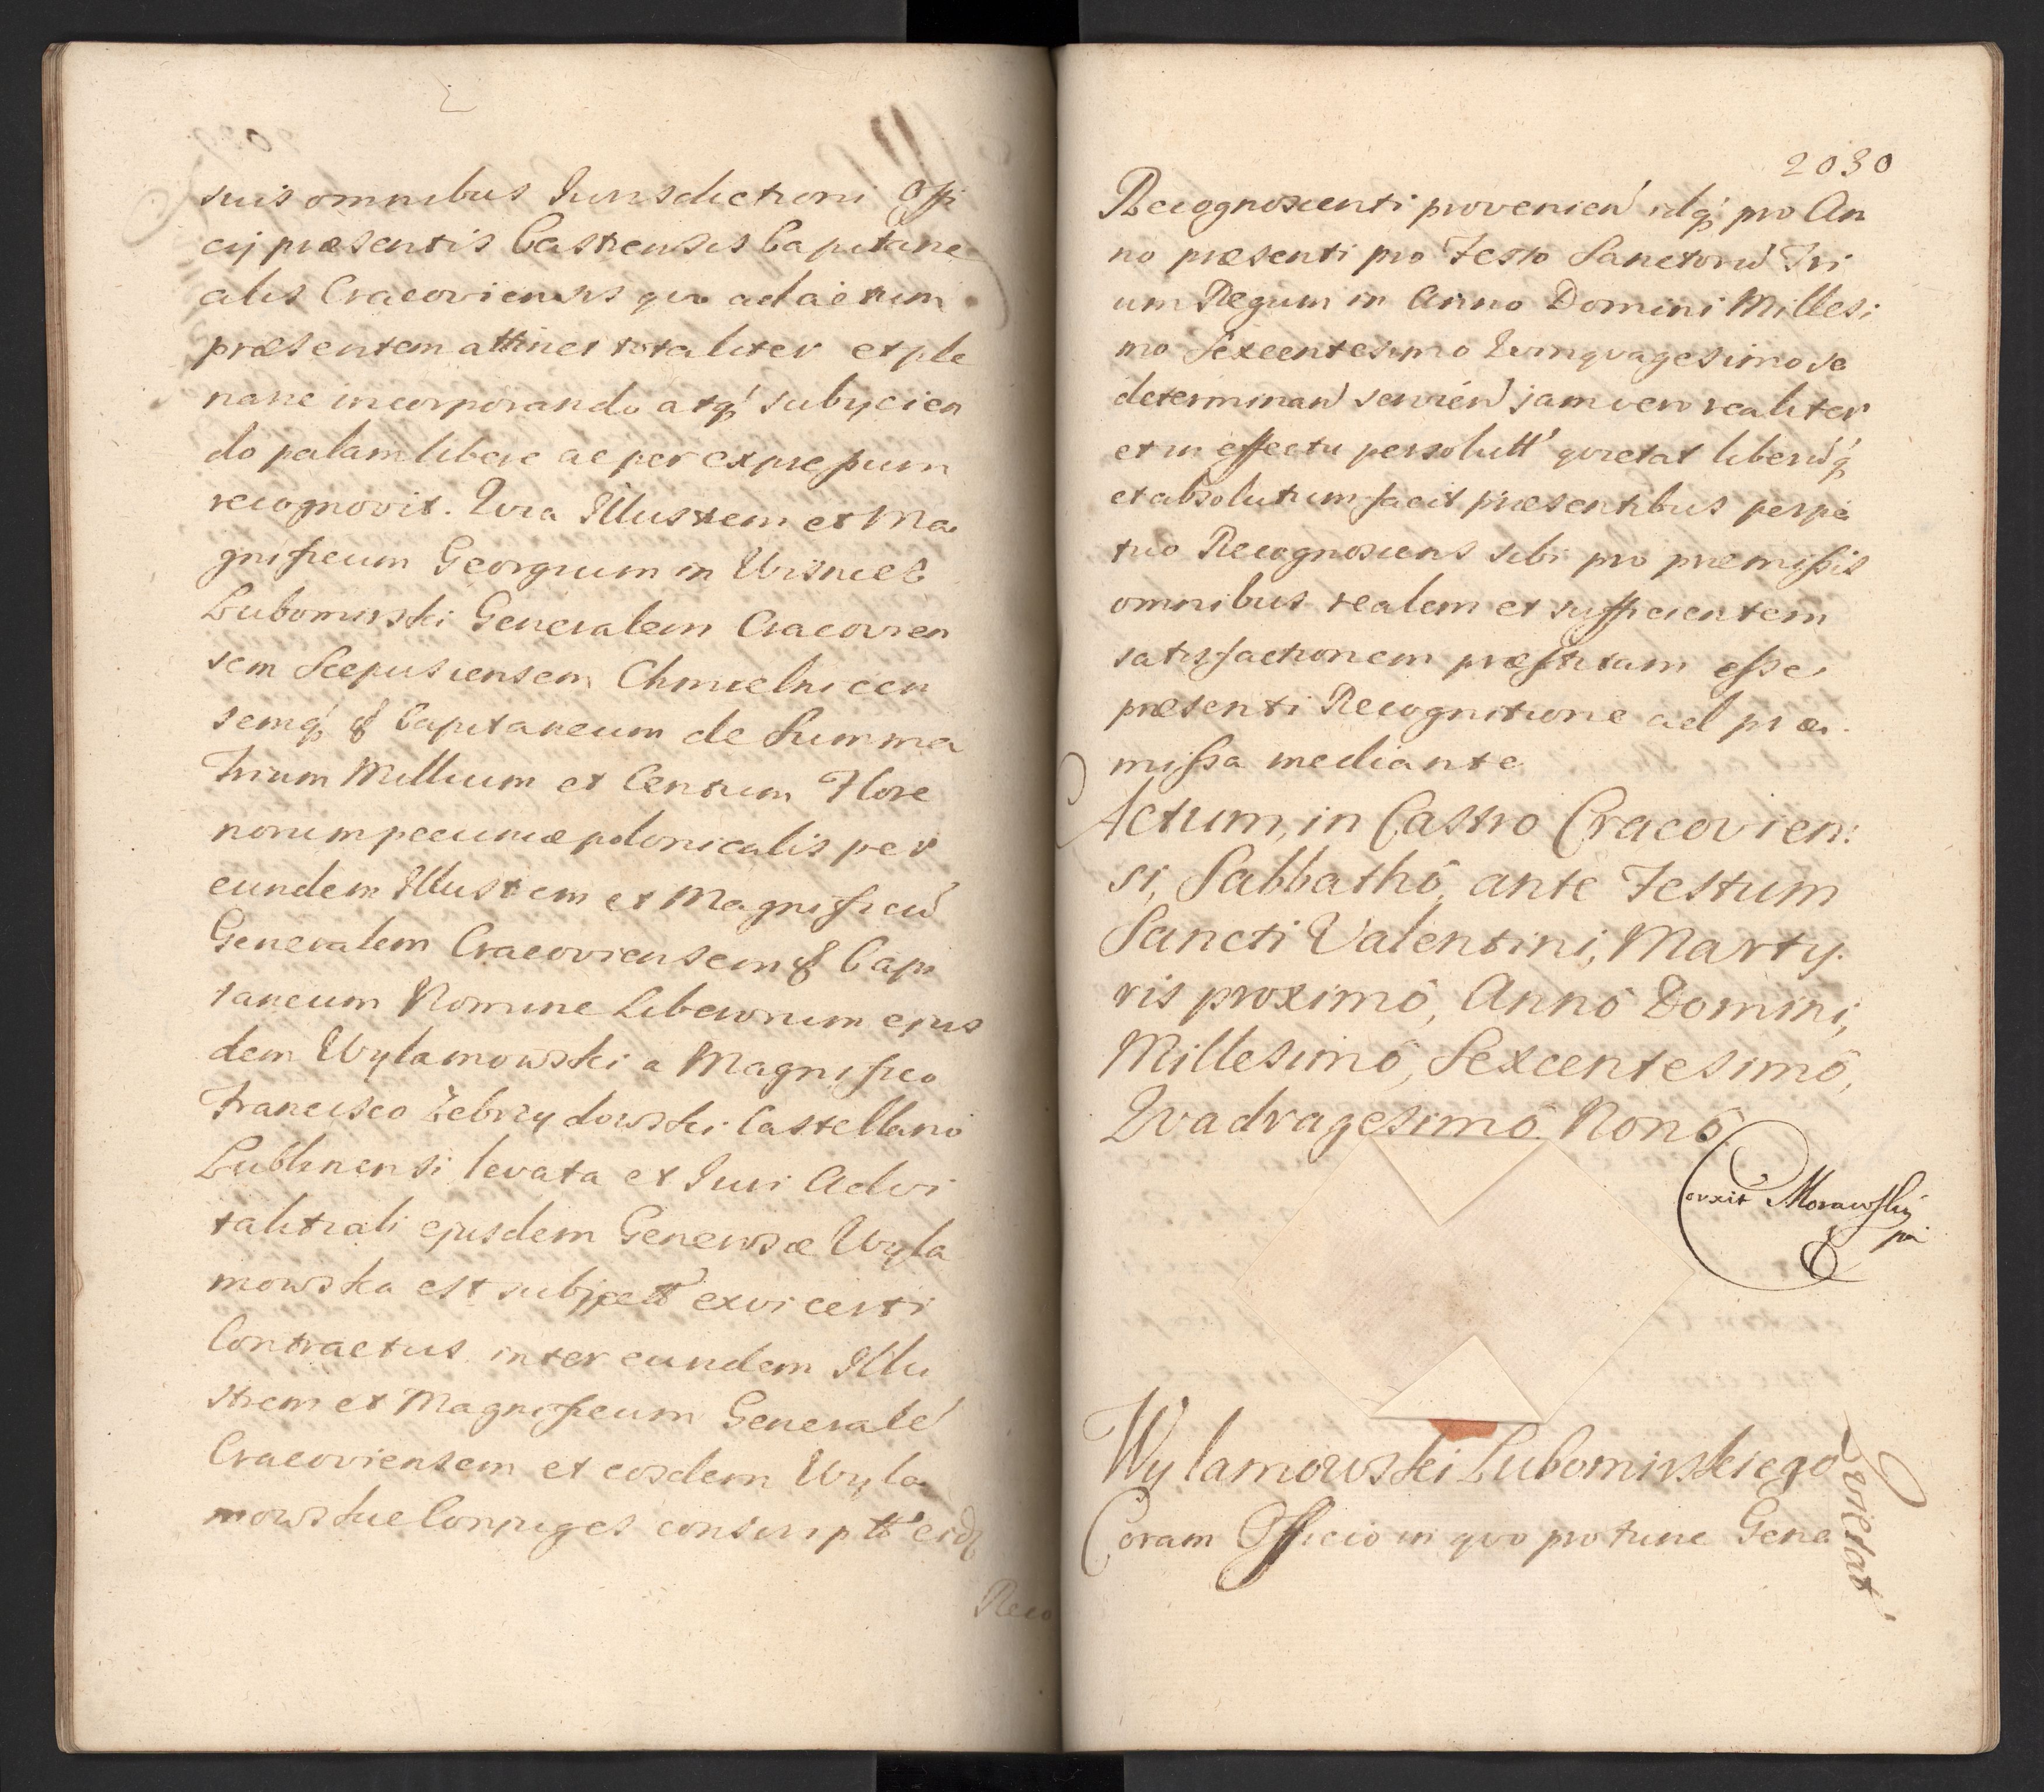 suis omnibus Iurisdictioni Offi
cij præsentis Castrensis Capitane
alis Cracoviensis qvo ad actum
præsentem attinet totaliter et ple
narie incorporando atq́ subijcien
do palam libere ac per expressum
recognovit. Qvia Illustrem et Ma
gnificum Georgium in Wisnicz
Lubomirski Generalem Cracovien
sem Scepusiensem Chmielnicen
semq́ & Capitaneum de Summa
Trium Millium et Centum Flore
norum pecuniæ polonicalis per
eundem Illustrem et Magnificū
Generalem Cracoviensem & Capi
taneum Nomine Liberorum ejus
dem Wylamowski a Magnifico
Francisco Zebrzydowski Castellano
Lublinensi levata et Iuri Advi
talitiali ejusdem Generosæ Wyla
mowska est subject̃ ex vi certi
Contractus inter eundem Illu
strem et Magnificum Generalē
Cracoviensem et eosdem Wyla
mowskie Conjuges conscript̃
Reco
2030
Recognoscenti provenień idq́ pro An
no præsenti pro Festo Sanctorū Tri
um Regum in Anno Domini Millesi
mo Sexcentesimo Qvinqvagesimo se
determinań servień jam vero realiter
et in effectu persolutt́ qvietat liberūq́
et absolutum facit præsentibus perpe
tuo Recognoscens sibi pro præmissis
omnibus realem et sufficientem
satisfactionem præstitam esse
præsenti Recognitione ad præ
missa mediante
Actum, in Castro Cracovien:
si, Sabbathô, ante Festum
Sancti Valentini, Marty.
ris proximô, Annô Domini,
Millesimô, Sexcentesimô,
Qvadragesimô Nonô
Corrxit Morawski
Wylamowski Lubomirskiego
Qvietat
Coram Officio in qvo pro tunc Gene